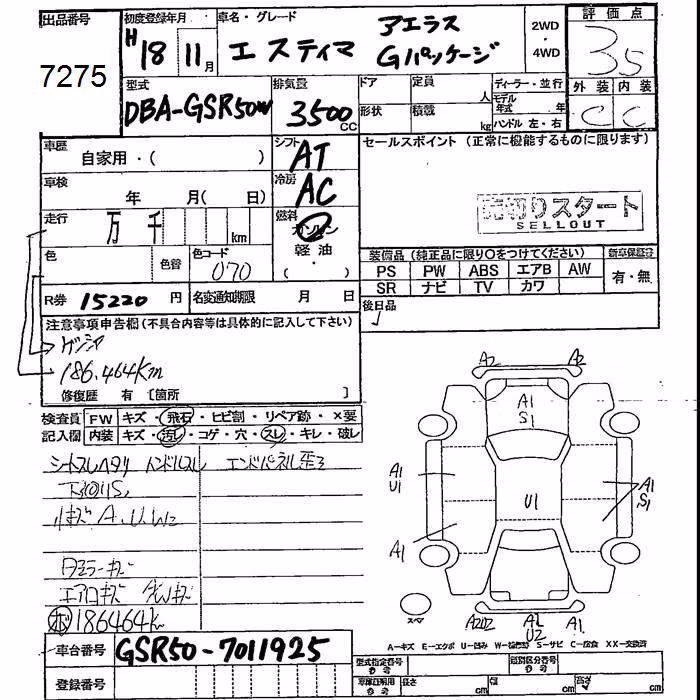 出品番号 初度登録年月 車名・グレード 評価点
7275 H18 11月 エスティマ アエラス Gパッケージ 2WD・4WD 3.5
型式 排気量 ドア 定員 人 ディーラー・並行 外装 内装
DBA-GSR50W 3500cc 形状 積載 kg モデル年式 年 ハンドル 左・右 C C
車歴 自家用・( ) シフト AT セールスポイント (正常に機能するものに限ります)
車検 年 月( 日) 冷房 AC
売切りスタート
SELLOUT
走行 万 千 km 燃料 ガソリン
軽油
・( )
色 色替 色コード 070 装備品 (純正品に限り○をつけてください) 新車保証書
PS PW ABS エアB AW 有・無
SR ナビ TV カワ
R券 15220円 名変通知期限 月 日 後日品
注意事項申告欄(不具合内容等は具体的に記入して下さい)
ゲンシャ
186.464Km
修復歴 有 [箇所 ]
検査員 FW キズ・飛石・ヒビ割・リペア跡・×要
記入欄 内装 キズ・汚レ・コゲ・穴・スレ・キレ・破レ
シートスレヘタリ ハンドルスレ エンドパネル歪ミ
下廻りS
小キズ A.U.W
ドアミラーキズ
エアロキズ
186464k
A2 A2
A1
S1
A1
U1
U1
A1
S1
A1
A2U2 A1 U2 A1
スペア
A-キズ E-エクボ U-凹み W-補修跡 S-サビ C-腐食 XX-交換済
車台番号 GSR50-7011925
登録番号
型式指定番号 参考 類別区分番号 参考
車庫証明用 参考 長さ cm 幅 cm 高さ cm